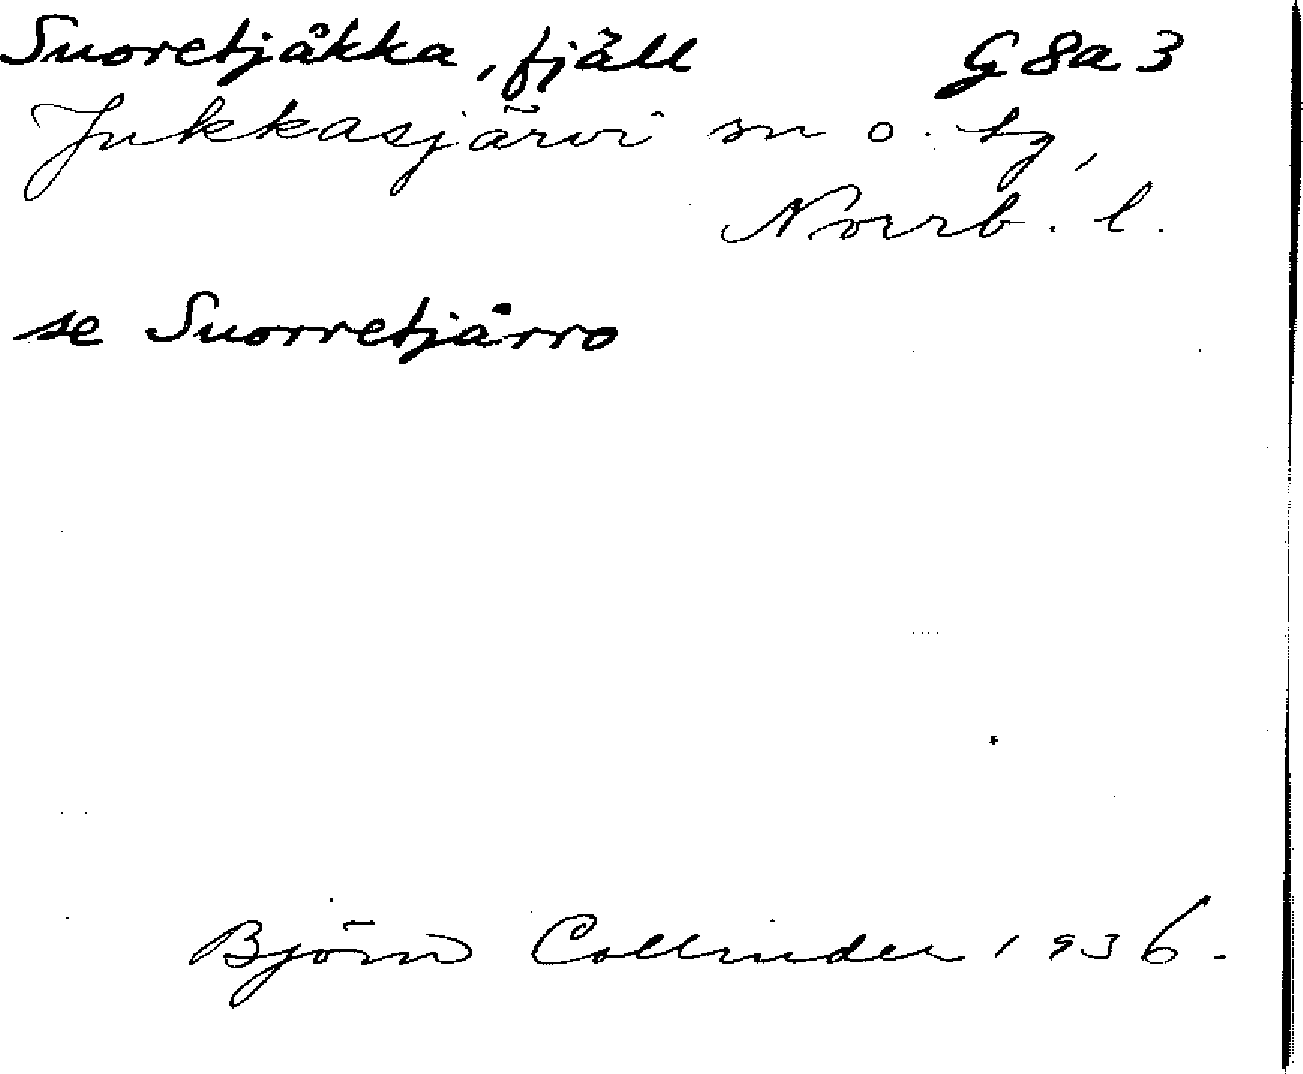 Suoretjåkka, fjäll G8a3
Jukkasjärvi sn o. tg,
Norrb. l.
se Suorretjårro
Björn Collinder 1936.